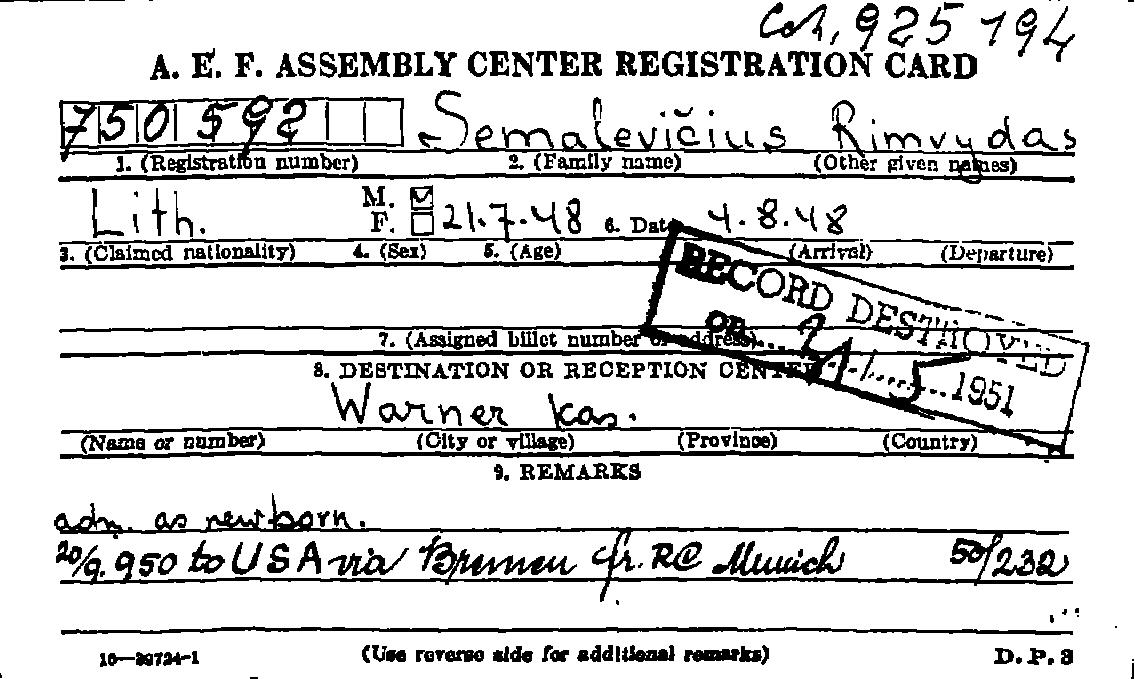 Col. 925 794
A. E. F. ASSEMBLY CENTER REGISTRATION CARD
750 592 Semalevičius Rimvydas
1. (Registration number) 2. (Family name) (Other given names)
Lith. M. ☑ F. ☐ 21.7.48 6. Date 4.8.48
3. (Claimed nationality) 4. (Sex) 5. (Age) (Arrival) (Departure)
RECORD DESTROYED
ON 1951
7. (Assigned billet number or address)
8. DESTINATION OR RECEPTION CENTER
Warner Kas.
(Name or number) (City or village) (Province) (Country)
9. REMARKS
adm. as newborn.
20/9.950 to USA via Bremen fr. RC Munich 50/232
16—39724-1 (Use reverse side for additional remarks) D.P.3